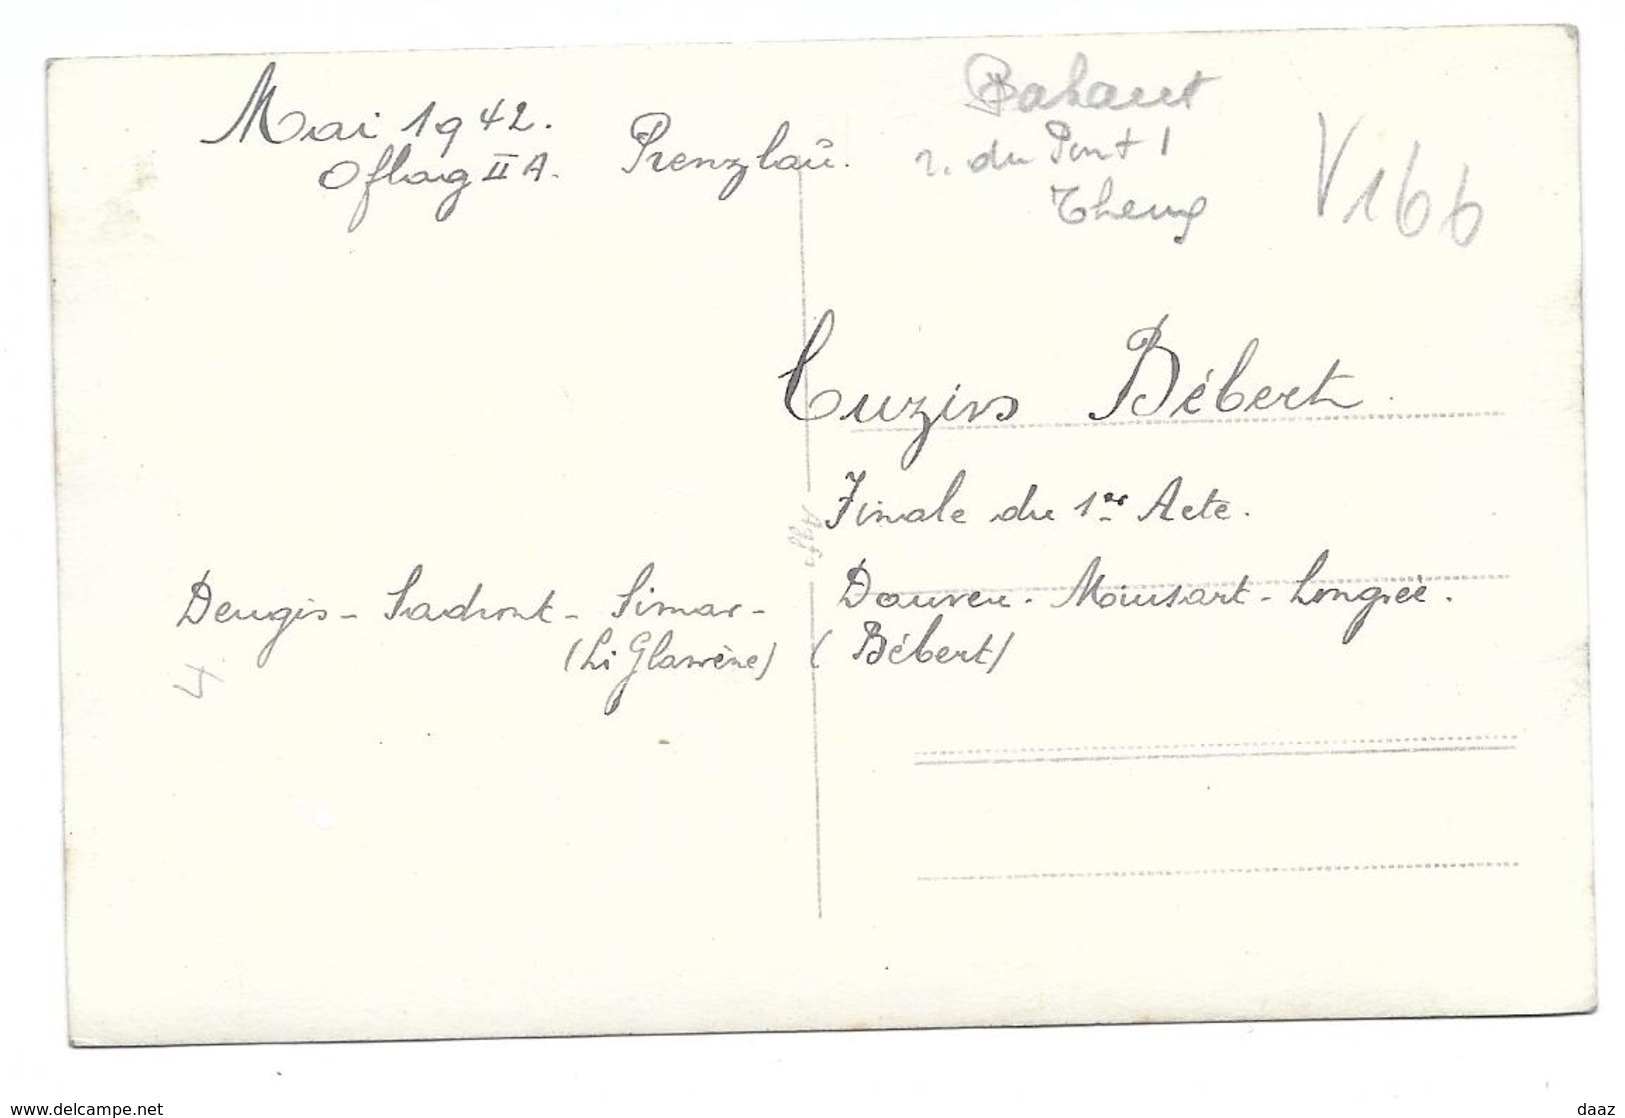 Mai 1942.
Oflag II A. Prenzlaū.
Bahaut
r. du Pont 1
Theux
V166
Cuzins Bébert.
Finale du 1er Acte.
Agfa
Deugis - Sadront - Simar - Douven - Minsart - Longrée.
(Li Glawène) (Bébert)
4
www.delcampe.net
daaz